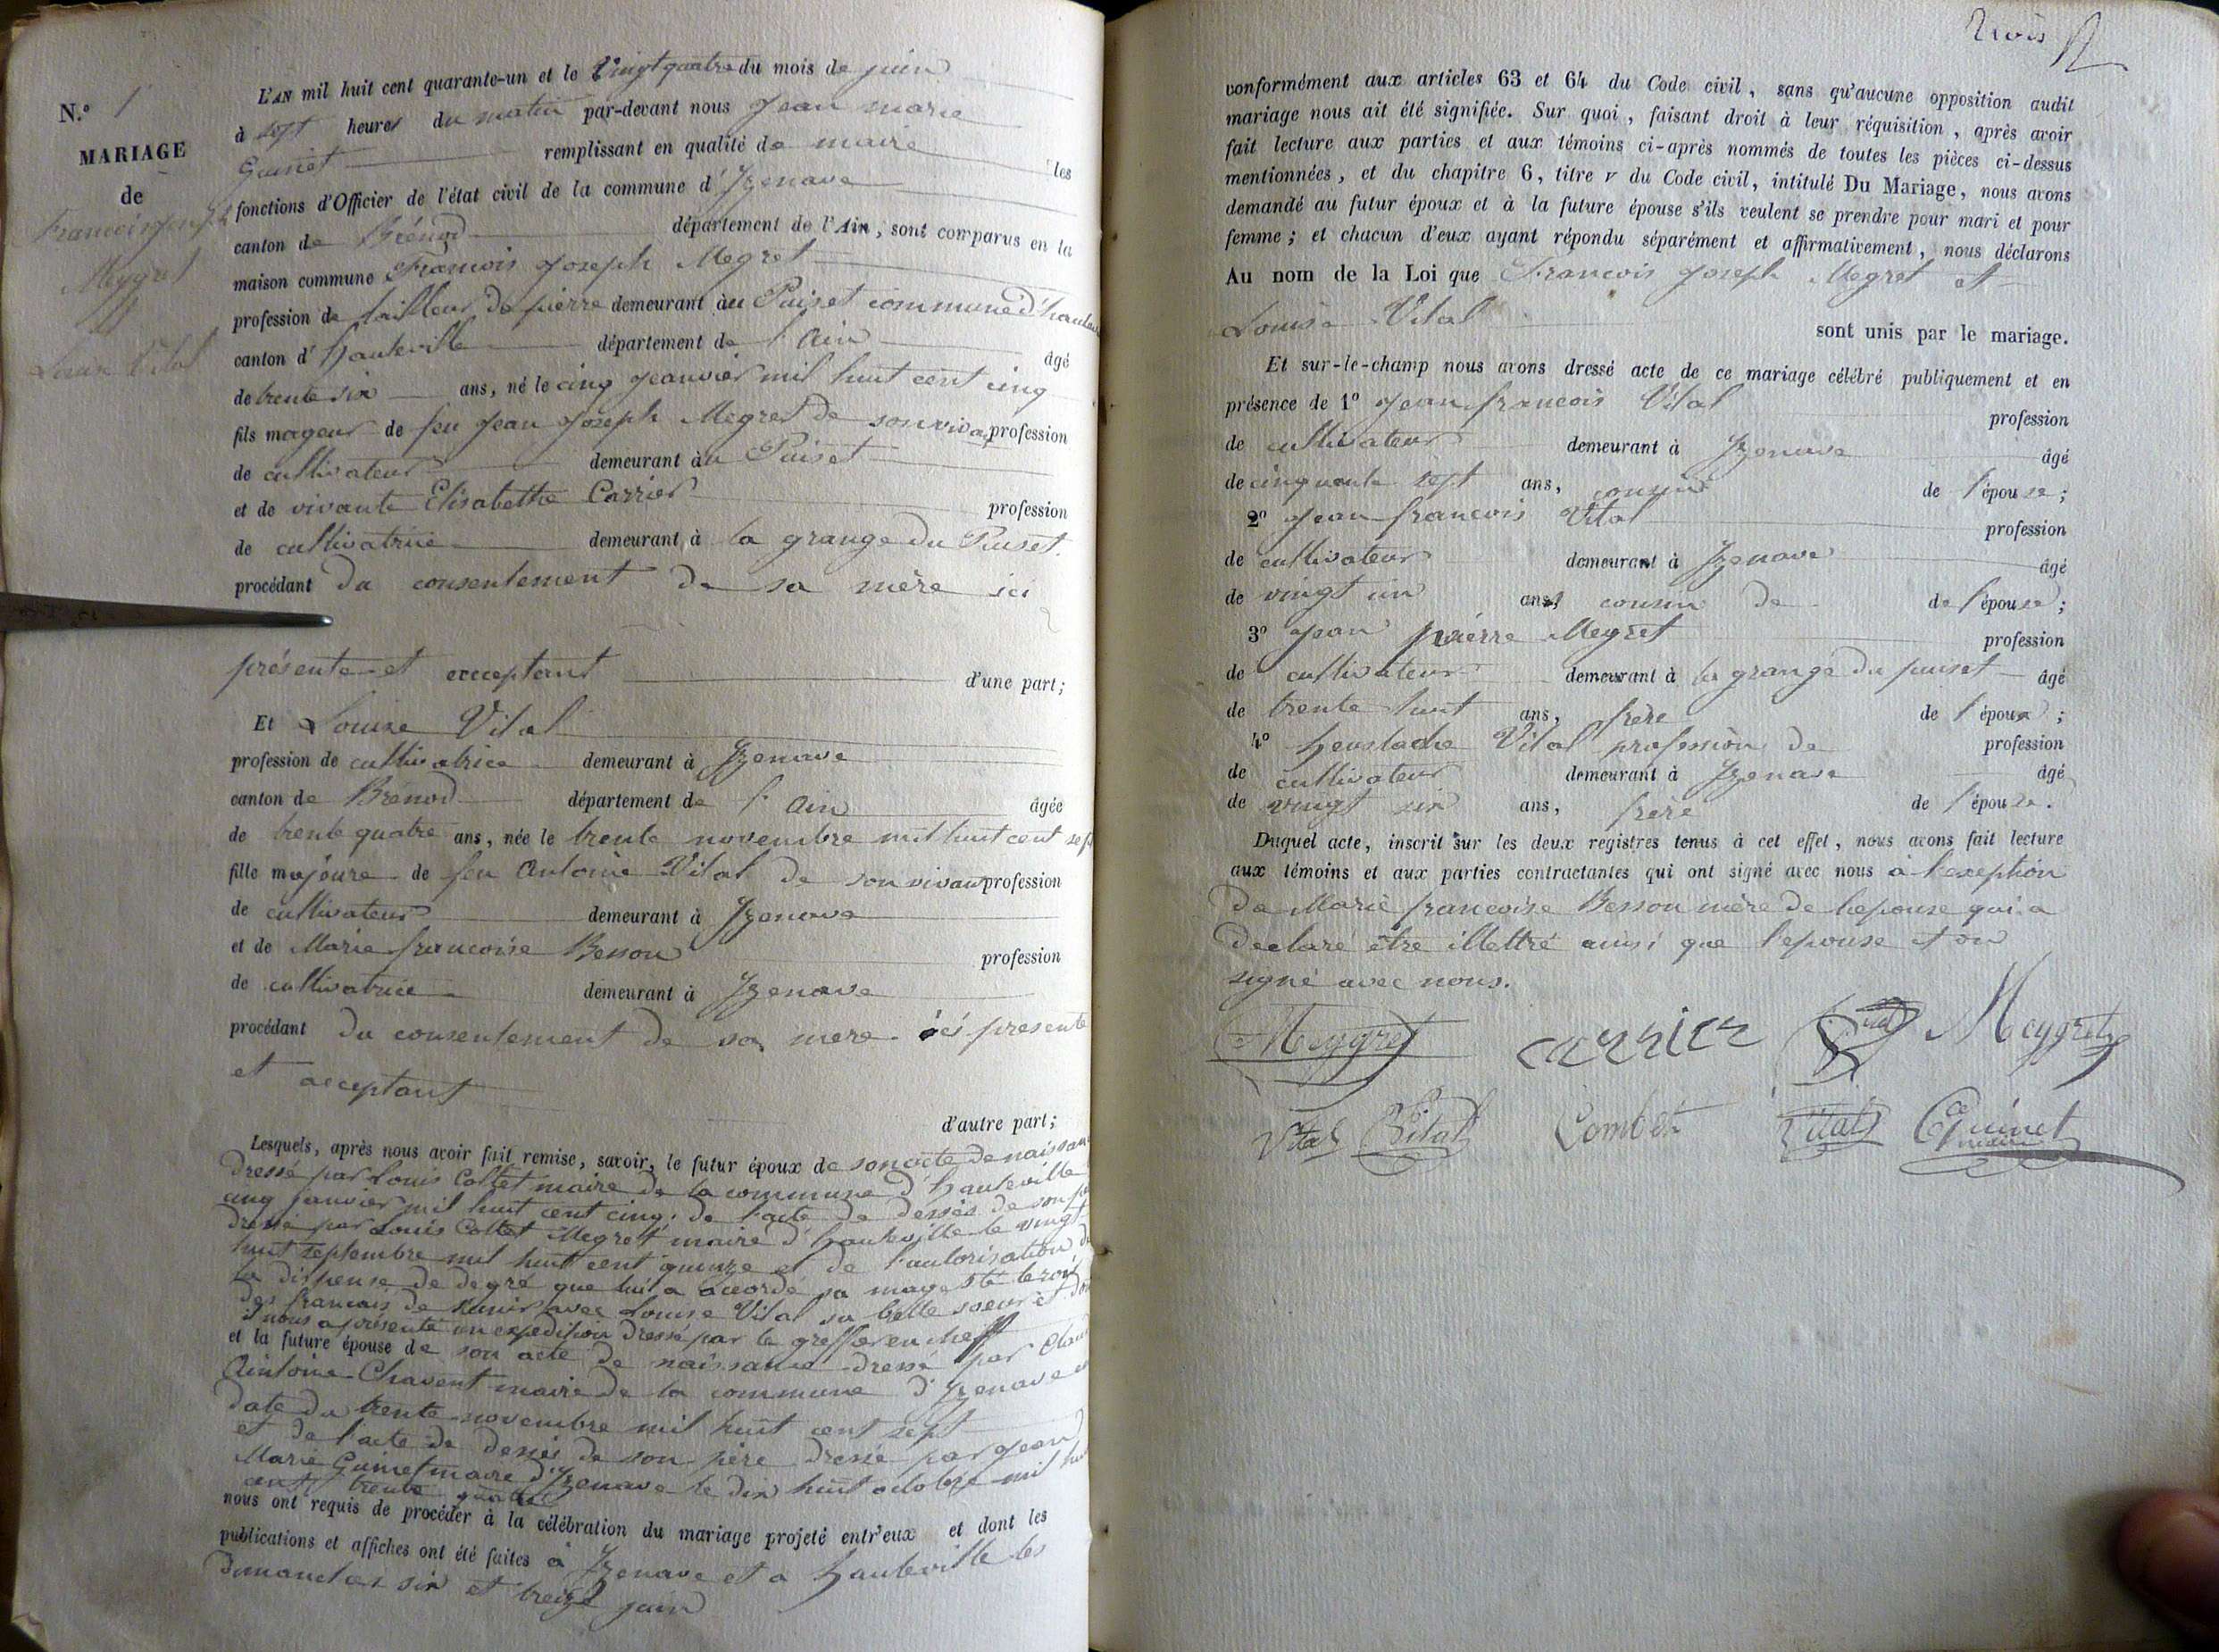 N.° 1
MARIAGE
de
François joseph
Meygret
et
Louise Vital
L'AN mil huit cent quarante-un et le vingt quatre du mois de juin
à sept heures du matin par-devant nous jean marie
Guinet remplissant en qualité de maire les
fonctions d'Officier de l'état civil de la commune d'Izenave
canton de Brénod département de l'Ain, sont comparus en la
maison commune François joseph Megret
profession de tailleur de pierre demeurant au Puiset commune d'hauteville
canton d'hauteville département de l'ain âgé
de trente six ans, né le cinq jeanvier mil huit cent cinq
fils mageur de feu jean joseph Megret de son vivant profession
de cultivateur demeurant au Puiset
et de vivante Elisabethe Carrier profession
de cultivatrice demeurant à la grange du Puiset.
procédant du consentement de sa mère ici
présente et acceptant d'une part;
Et Louise Vital
profession de cultivatrice demeurant à Izenave
canton de Brenod département de l'ain âgée
de trente quatre ans, née le trente novembre mil huit cent sept
fille majeure de feu Antoine Vital de son vivant profession
de cultivateur demeurant à Izenave
et de Marie françoise Besson profession
de cultivatrice demeurant à Izenave
procédant du consentement de sa mere ici presente
et acceptant
d'autre part;
Lesquels, après nous avoir fait remise, savoir, le futur époux de son acte de naissance
dressé par Louis Collet maire de la commune d'hauteville
cinq janvier mil huit cent cinq. de l'acte de desses de son père
dressé par Louis Collet Megret maire d'hauteville le vingt
huit septembre mil huit cent quinze et de l'autorisation de
la dispense de degré que lui a accordé sa magesté le roi
des francais de sunir avec Louise Vital sa belle soeur et dont
il nous a présenté un expedition dressé par le greffier en cheff
et la future épouse de son acte de naissance dressé par Claude
Antoine Chavent maire de la commune d'Izenave en
date du trente novembre mil huit cent sept
et de l'acte de desses de son père dressé par jean
Marie Guinet maire d'Izenave le dix huit octobre mil huit
cent trente quatre
nous ont requis de procéder à la célébration du mariage projeté entr'eux et dont les
publications et affiches ont été faites à Izenave et a hauteville les
dimanches six et treize juin
trois
conformément aux articles 63 et 64 du Code civil, sans qu'aucune opposition audit
mariage nous ait été signifiée. Sur quoi, faisant droit à leur réquisition, après avoir
fait lecture aux parties et aux témoins ci-après nommés de toutes les pièces ci-dessus
mentionnées, et du chapitre 6, titre v du Code civil, intitulé Du Mariage, nous avons
demandé au futur époux et à la future épouse s'ils veulent se prendre pour mari et pour
femme; et chacun d'eux ayant répondu séparément et affirmativement, nous déclarons
Au nom de la Loi que François joseph Megret et
Louise Vital sont unis par le mariage.
Et sur-le-champ nous avons dressé acte de ce mariage célébré publiquement et en
présence de 1° jean françois Vital profession
de cultivateur demeurant à Izenave âgé
de cinquante sept ans, cousin de l'épouse;
2° jean françois Vital profession
de cultivateur demeurant à Izenave âgé
de vingt un ans, cousin de de l'épouse;
3° jean pierre Meygret profession
de cultivateur demeurant à la grange du puiset âgé
de trente huit ans, frère de l'époux;
4° heustache Vital profession de profession
de cultivateur demeurant à Izenave âgé
de vingt six ans, frère de l'épouse.
Duquel acte, inscrit sur les deux registres tenus à cet effet, nous avons fait lecture
aux témoins et aux parties contractantes qui ont signé avec nous à l'exeption
de Marie françoise Besson mère de lepouse qui a
declaré être illettré ainsi que l'epouse et on
signé avec nous.
Meygret carrier Vital Meygret
Vital Vital Combet Vital Guinet
maire